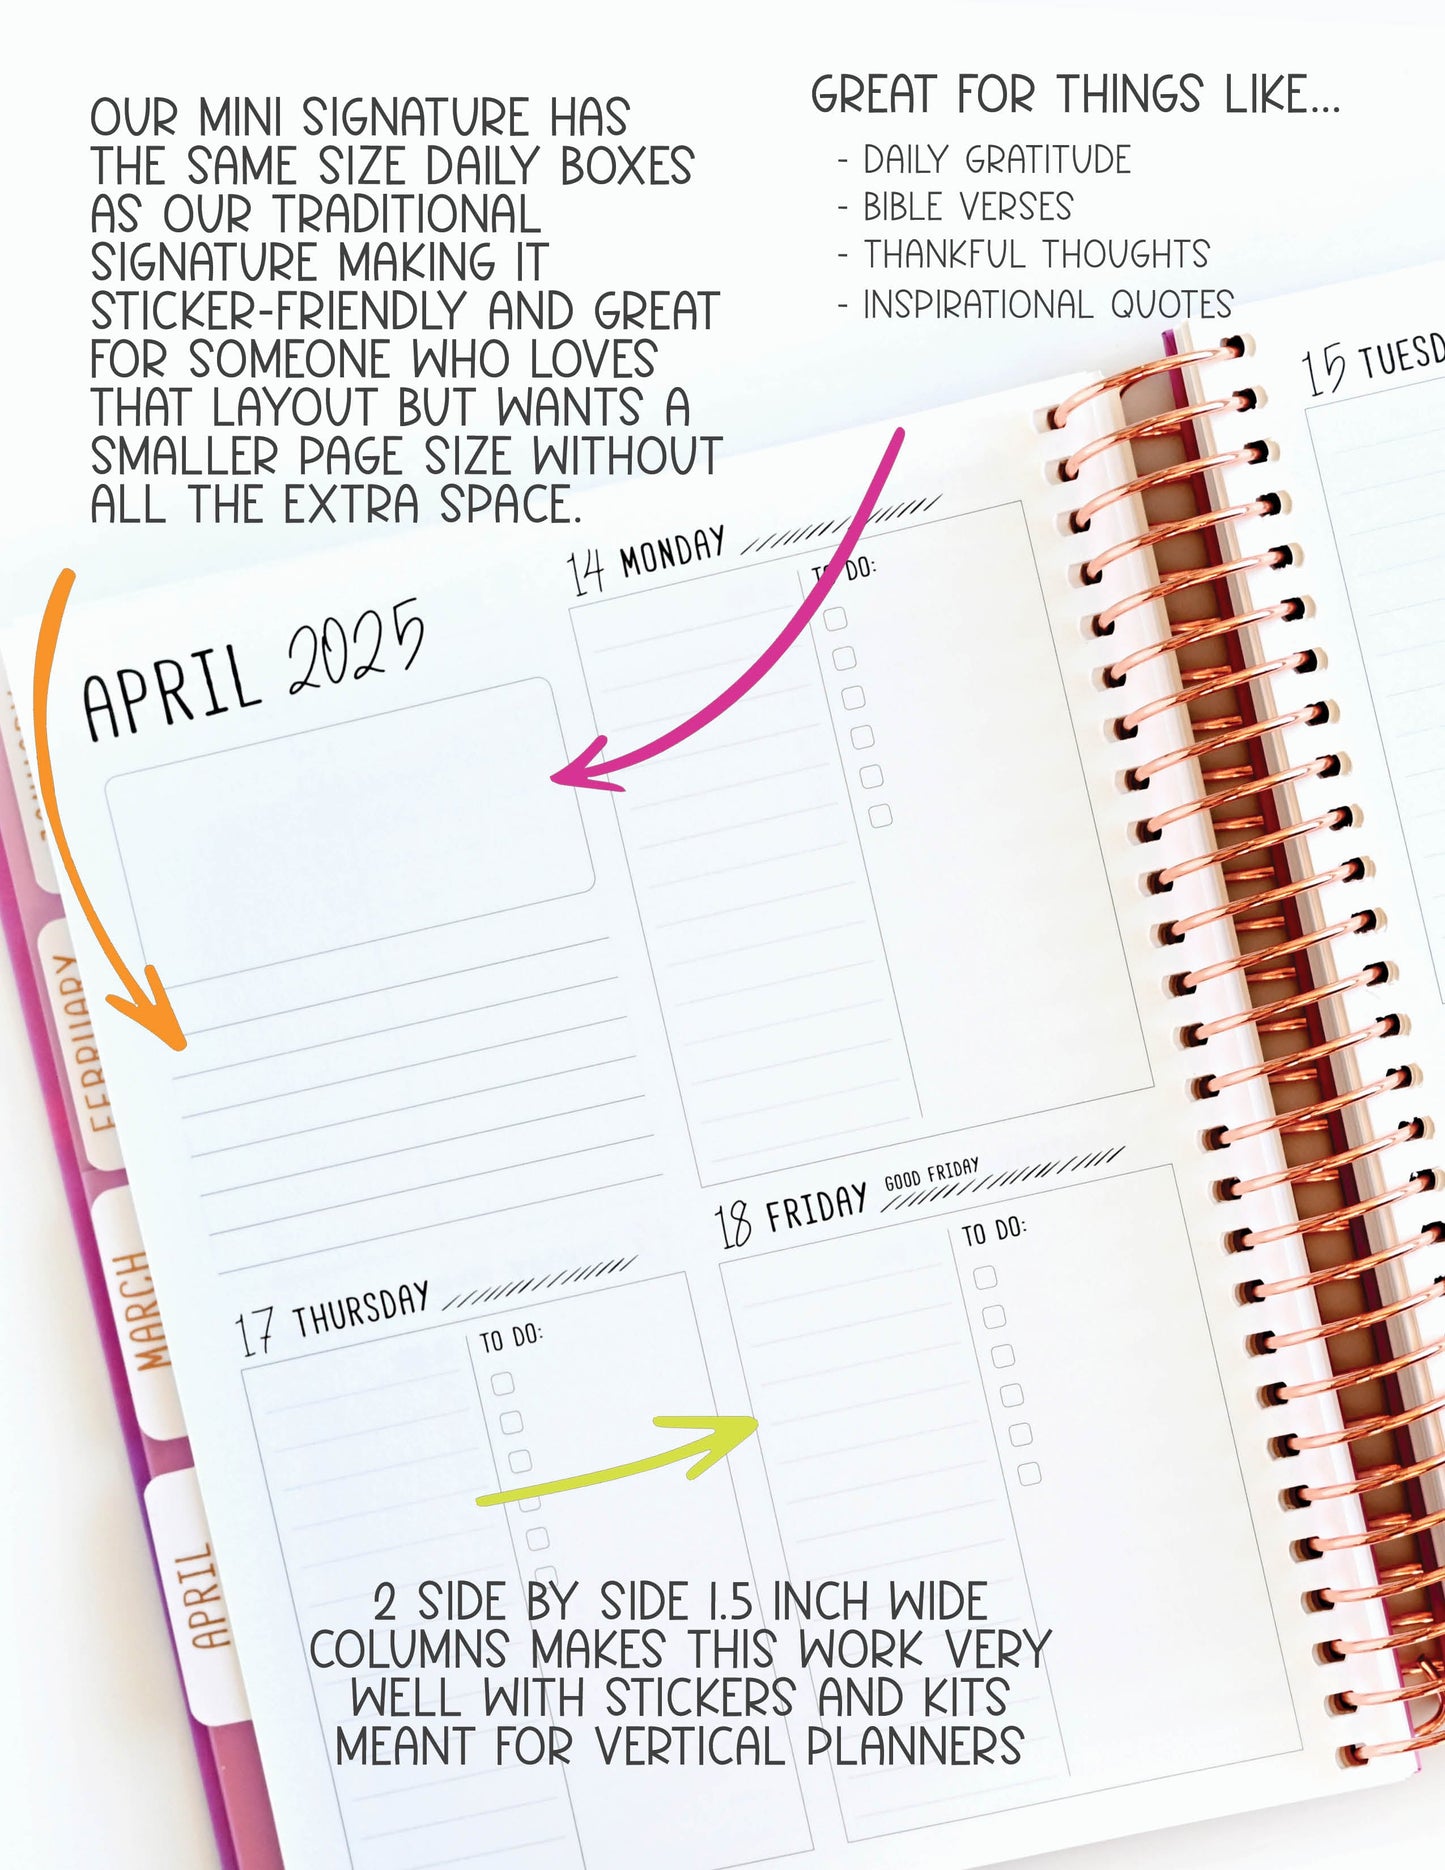 OUR MINI SIGNATURE HAS
THE SAME SIZE DAILY BOXES
AS OUR TRADITIONAL
SIGNATURE MAKING IT
STICKER-FRIENDLY AND GREAT
FOR SOMEONE WHO LOVES
THAT LAYOUT BUT WANTS A
SMALLER PAGE SIZE WITHOUT
ALL THE EXTRA SPACE.
GREAT FOR THINGS LIKE...
- DAILY GRATITUDE
- BIBLE VERSES
- THANKFUL THOUGHTS
- INSPIRATIONAL QUOTES
15 TUESD
14 MONDAY
TO DO:
APRIL 2025
18 FRIDAY GOOD FRIDAY
TO DO:
17 THURSDAY
TO DO:
FEBRUARY
MARCH
APRIL
2 SIDE BY SIDE 1.5 INCH WIDE
COLUMNS MAKES THIS WORK VERY
WELL WITH STICKERS AND KITS
MEANT FOR VERTICAL PLANNERS